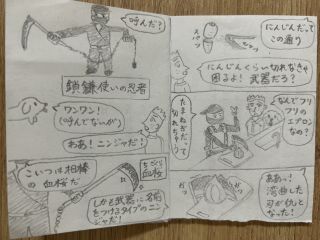 呼んだ?
鎖鎌使いの忍者
ワンワン!
(呼んでないが)
わあ!ニンジャだ!
こいつは相棒
の血桜だ
ちざくら
血桜
しかも武器に名前
をつけるタイプのニン
ジャだ!
にんじんだって
この通り
スパッ
にんじんくらい切れなきゃ
困るよ!武器だろ?
たまねぎだって
切れちゃう
なんでフリ
フリの
エプロン
なの?
ああっ!
湾曲した
刃が仇と
なった!
ガッ
ガッ